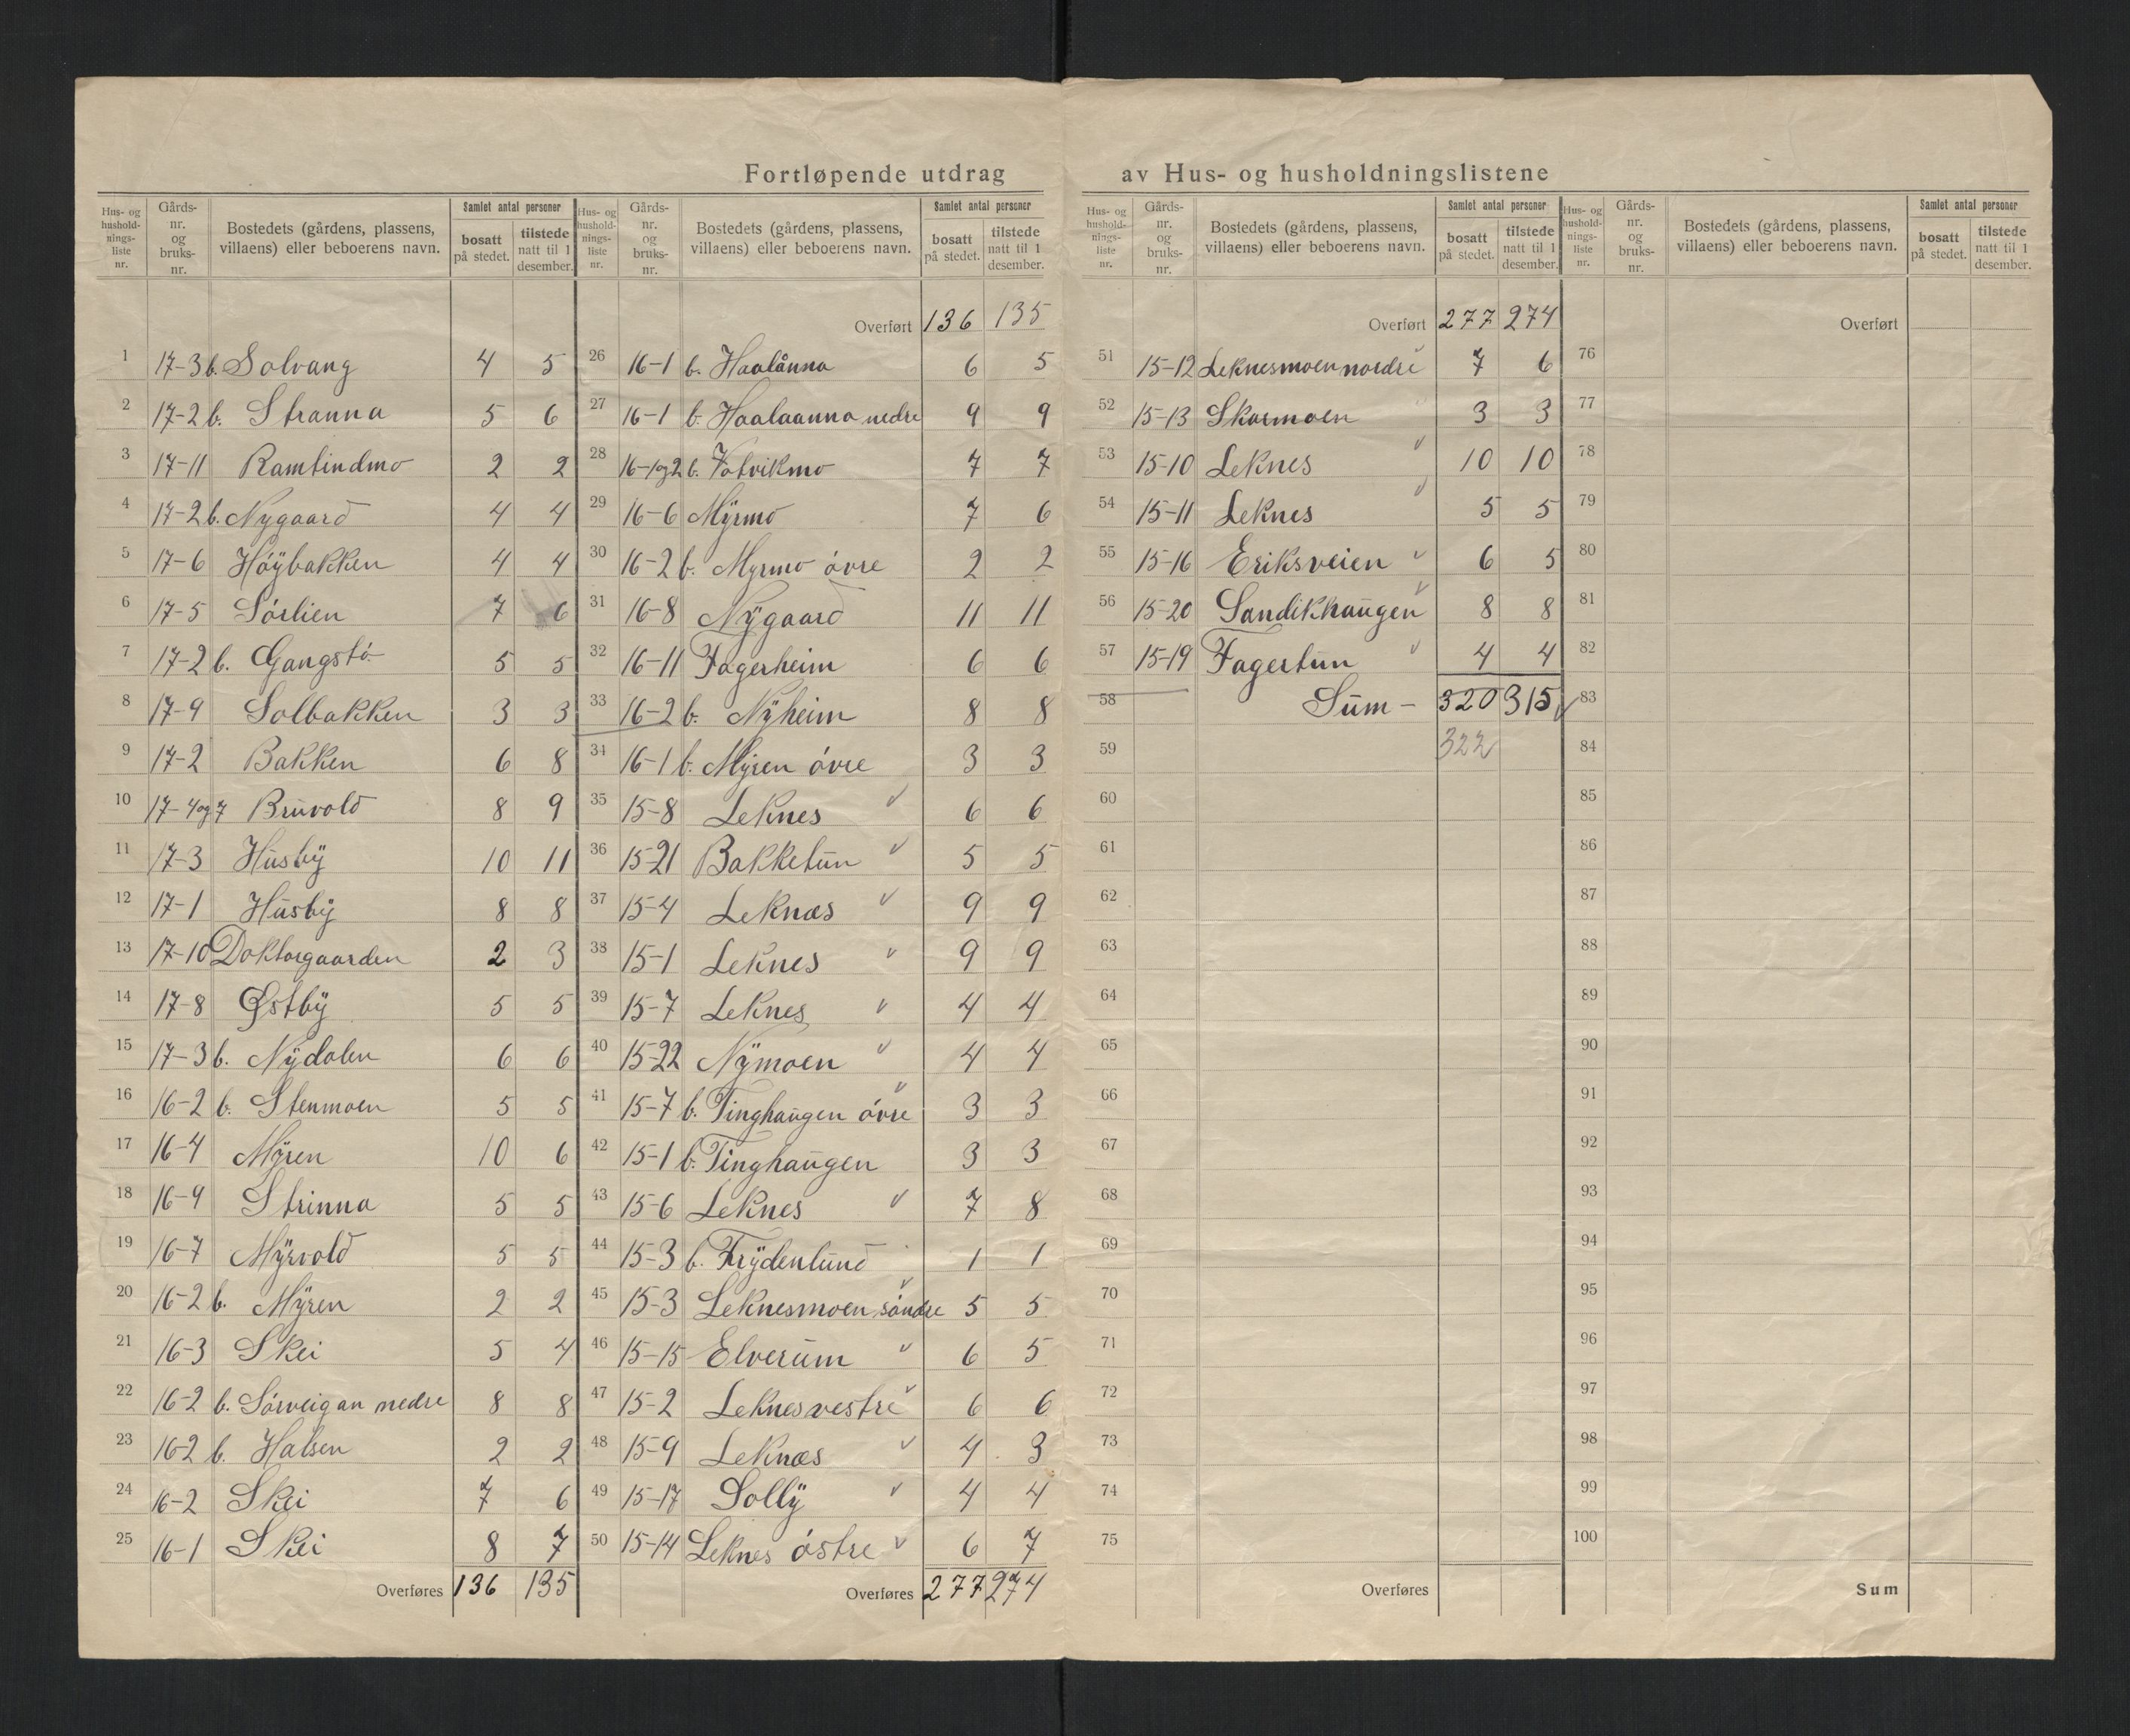 Fortløpende utdrag av Hus- og husholdningslistene
Hus- og hushold-nings-liste nr. Gårds-nr. og bruks-nr. Bostedets (gårdens, plassens, villaens) eller beboerens navn. Samlet antal personer bosatt på stedet. tilstede natt til 1 desember.
1 17-3 b. Solvang 4 5
2 17-2 b. Stranna 5 6
3 17-11 Ramtindmo 2 2
4 17-2 b. Nygaard 4 4
5 17-6 Høÿbakken 4 4
6 17-5 Sørlien 7 6
7 17-2 b. Gangstø 5 5
8 17-9 Solbakken 3 3
9 17-2 Bakken 6 8
10 17-4 og 7 Bruvold 8 9
11 17-3 Husbÿ 10 11
12 17-1 Husbÿ 8 8
13 17-10 Doktorgaarden 2 3
14 17-8 Østbÿ 5 5
15 17-3 b. Nÿdalen 6 6
16 16-2 b. Stenmoen 5 5
17 16-4 Mÿren 10 6
18 16-9 Strinna 5 5
19 16-7 Mÿrvold 5 5
20 16-2 b. Mÿren 2 2
21 16-3 Skei 5 4
22 16-2 b. Sørveigan nedre 8 8
23 16-2 b. Halsen 2 2
24 16-2 Skei 7 6
25 16-1 Skei 8 7
Overføres 136 135
Hus- og hushold-nings-liste nr. Gårds-nr. og bruks-nr. Bostedets (gårdens, plassens, villaens) eller beboerens navn. Samlet antal personer bosatt på stedet. tilstede natt til 1 desember.
Overført 136 135
26 16-1 b. Haalånna 6 5
27 16-1 b. Haalaanna nedre 9 9
28 16-1 og 2 b. Votvikmo 7 7
29 16-6 Mÿrmo 7 6
30 16-2 b. Myrmo øvre 2 2
31 16-8 Nÿgaard 11 11
32 16-11 Fagerheim 6 6
33 16-2 b. Nÿheim 8 8
34 16-1 b. Mÿren øvre 3 3
35 15-8 Leknes v 6 6
36 15-21 Bakketun v 5 5
37 15-4 Leknæs v 9 9
38 15-1 Leknes v 9 9
39 15-7 Leknes v 4 4
40 15-22 Nÿmoen v 4 4
41 15-7 b. Tinghaugen øvre v 3 3
42 15-1 b. Tinghaugen 3 3
43 15-6 Leknes v 7 8
44 15-3 b. Frÿdenlund 1 1
45 15-3 Leknesmoen søndre v 5 5
46 15-15 Elverum v 6 5
47 15-2 Leknes vestre v 6 6
48 15-9 Leknæs v 4 3
49 15-17 Sollÿ v 4 4
50 15-14 Leknes østre v 6 7
Overføres 277 274
Hus- og hushold-nings-liste nr. Gårds-nr. og bruks-nr. Bostedets (gårdens, plassens, villaens) eller beboerens navn. Samlet antal personer bosatt på stedet. tilstede natt til 1 desember.
Overført 277 274
51 15-12 Leknesmoen nordre v 7 6
52 15-13 Skarmoen v 3 3
53 15-10 Leknes v 10 10
54 15-11 Leknes v 5 5
55 15-16 Eriksveien v 6 5
56 15-20 Sandikhaugen v 8 8
57 15-19 Fagertun v 4 4
58 Sum - 320 315 v
59 322
60
61
62
63
64
65
66
67
68
69
70
71
72
73
74
75
Overføres
Hus- og hushold-nings-liste nr. Gårds-nr. og bruks-nr. Bostedets (gårdens, plassens, villaens) eller beboerens navn. Samlet antal personer bosatt på stedet. tilstede natt til 1 desember.
Overført
76
77
78
79
80
81
82
83
84
85
86
87
88
89
90
91
92
93
94
95
96
97
98
99
100
Sum